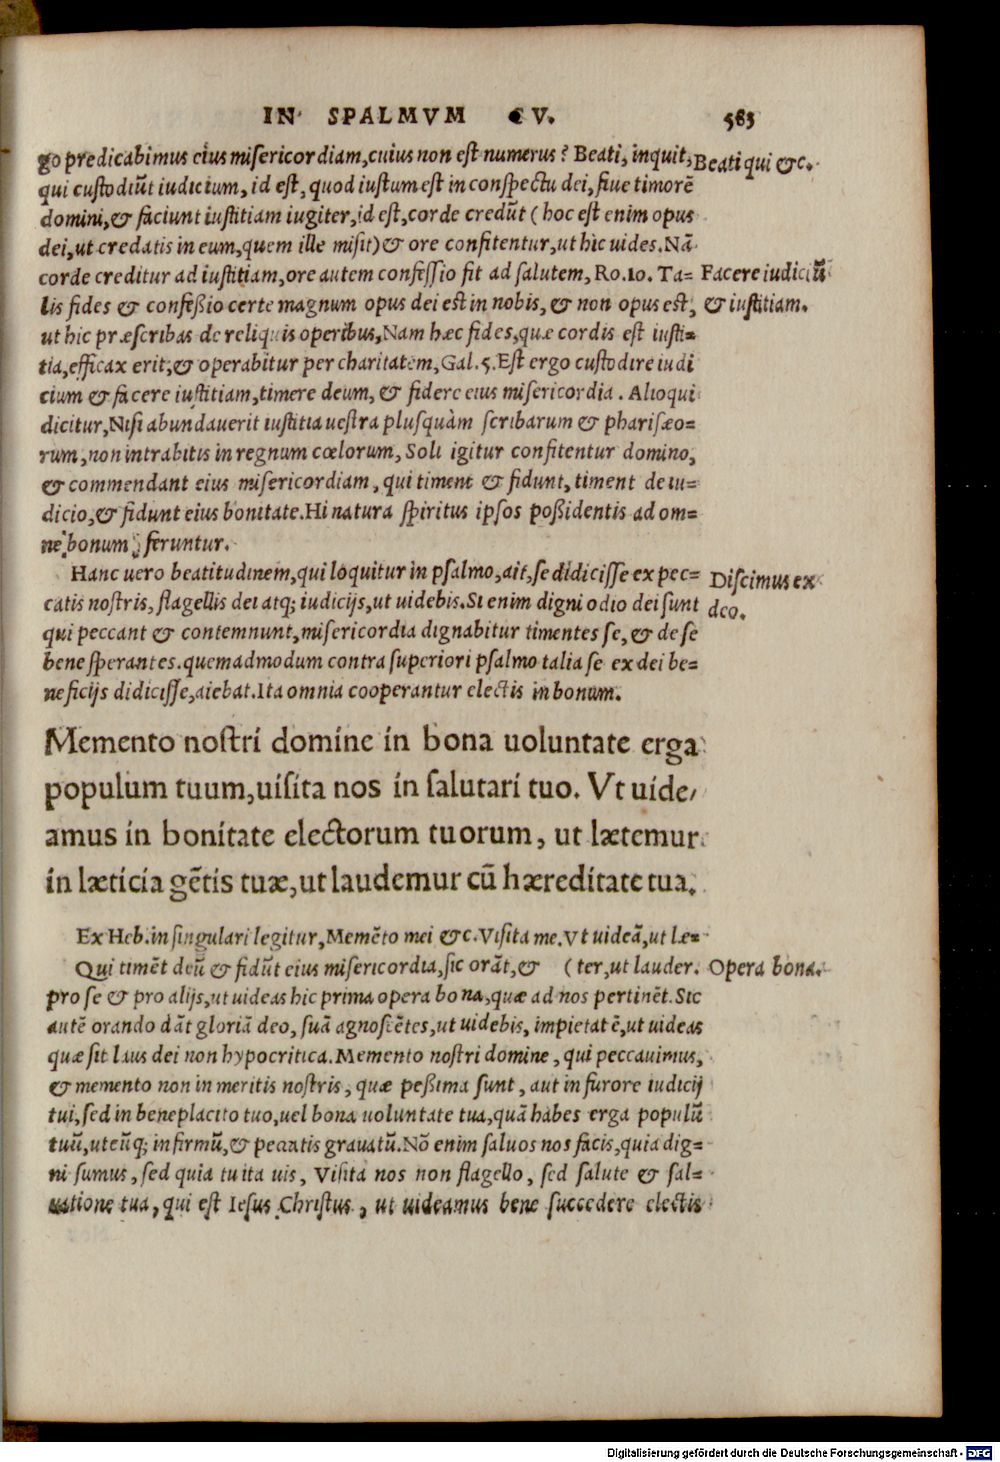 IN SPALMVM CV. 583
go predicabimus eius misericordiam, cuius non est numerus? Beati, inquit,
Beati qui &c.
qui custodiūt iudicium, id est, quod iustum est in conspectu dei, siue timorē
domini, & faciunt iustitiam iugiter, id est, corde credūt (hoc est enim opus
dei, ut credatis in eum, quem ille misit) & ore confitentur, ut hic uides. Nā
corde creditur ad iustitiam, ore autem confessio fit ad salutem, Ro. 10. Ta=
Facere iudiciū
lis fides & confeßio certe magnum opus dei est in nobis, & non opus est,
& iustitiam.
ut hic præscribas de reliquis operibus, Nam hæc fides, quæ cordis est iusti=
tia, efficax erit, & operabitur per charitatem, Gal. 5. Est ergo custodire iudi
cium & facere iustitiam, timere deum, & fidere eius misericordia. Alioqui
dicitur, Nisi abundauerit iustitia uestra plusquàm scribarum & pharisæo=
rum, non intrabitis in regnum cœlorum, Soli igitur confitentur domino,
& commendant eius misericordiam, qui timent & fidunt, timent de iu=
dicio, & fidunt eius bonitate. Hi natura spiritus ipsos poßidentis ad om=
ne bonum feruntur.
Hanc uero beatitudinem, qui loquitur in psalmo, ait, se didicisse ex pec=
Discimus ex
catis nostris, flagellis dei atq; iudicijs, ut uidebis. Si enim digni odio dei sunt
deo.
qui peccant & contemnunt, misericordia dignabitur timentes se, & de se
bene sperantes. quemadmodum contra superiori psalmo talia se ex dei be=
neficijs didicisse, aiebat. Ita omnia cooperantur electis in bonum.
Memento nostri domine in bona uoluntate erga
populum tuum, uisita nos in salutari tuo. Vt uide/
amus in bonitate electorum tuorum, ut lætemur
in læticia gētis tuæ, ut laudemur cū hæreditate tua.
Ex Heb. in singulari legitur, Memēto mei &c. Visita me. Vt uideā, ut læ=
Qui timēt deū & fidūt eius misericordia, sic orāt, & (ter, ut lauder.
Opera bona.
pro se & pro alijs, ut uideas hic prima opera bona, quæ ad nos pertinēt. Sic
autē orando dāt gloriā deo, suā agnoscētes, ut uidebis, impietatē, ut uideas
quæ sit laus dei non hypocritica. Memento nostri domine, qui peccauimus,
& memento non in meritis nostris, quæ peßima sunt, aut in furore iudicij
tui, sed in beneplacito tuo, uel bona uoluntate tua, quā habes erga populū
tuū, utcūq; infirmū, & peccatis grauatū. Nō enim saluos nos facis, quia dig=
ni sumus, sed quia tu ita uis, Visita nos non flagello, sed salute & sal=
uatione tua, qui est Iesus Christus, ut uideamus bene succedere electis
Digitalisierung gefördert durch die Deutsche Forschungsgemeinschaft - DFG